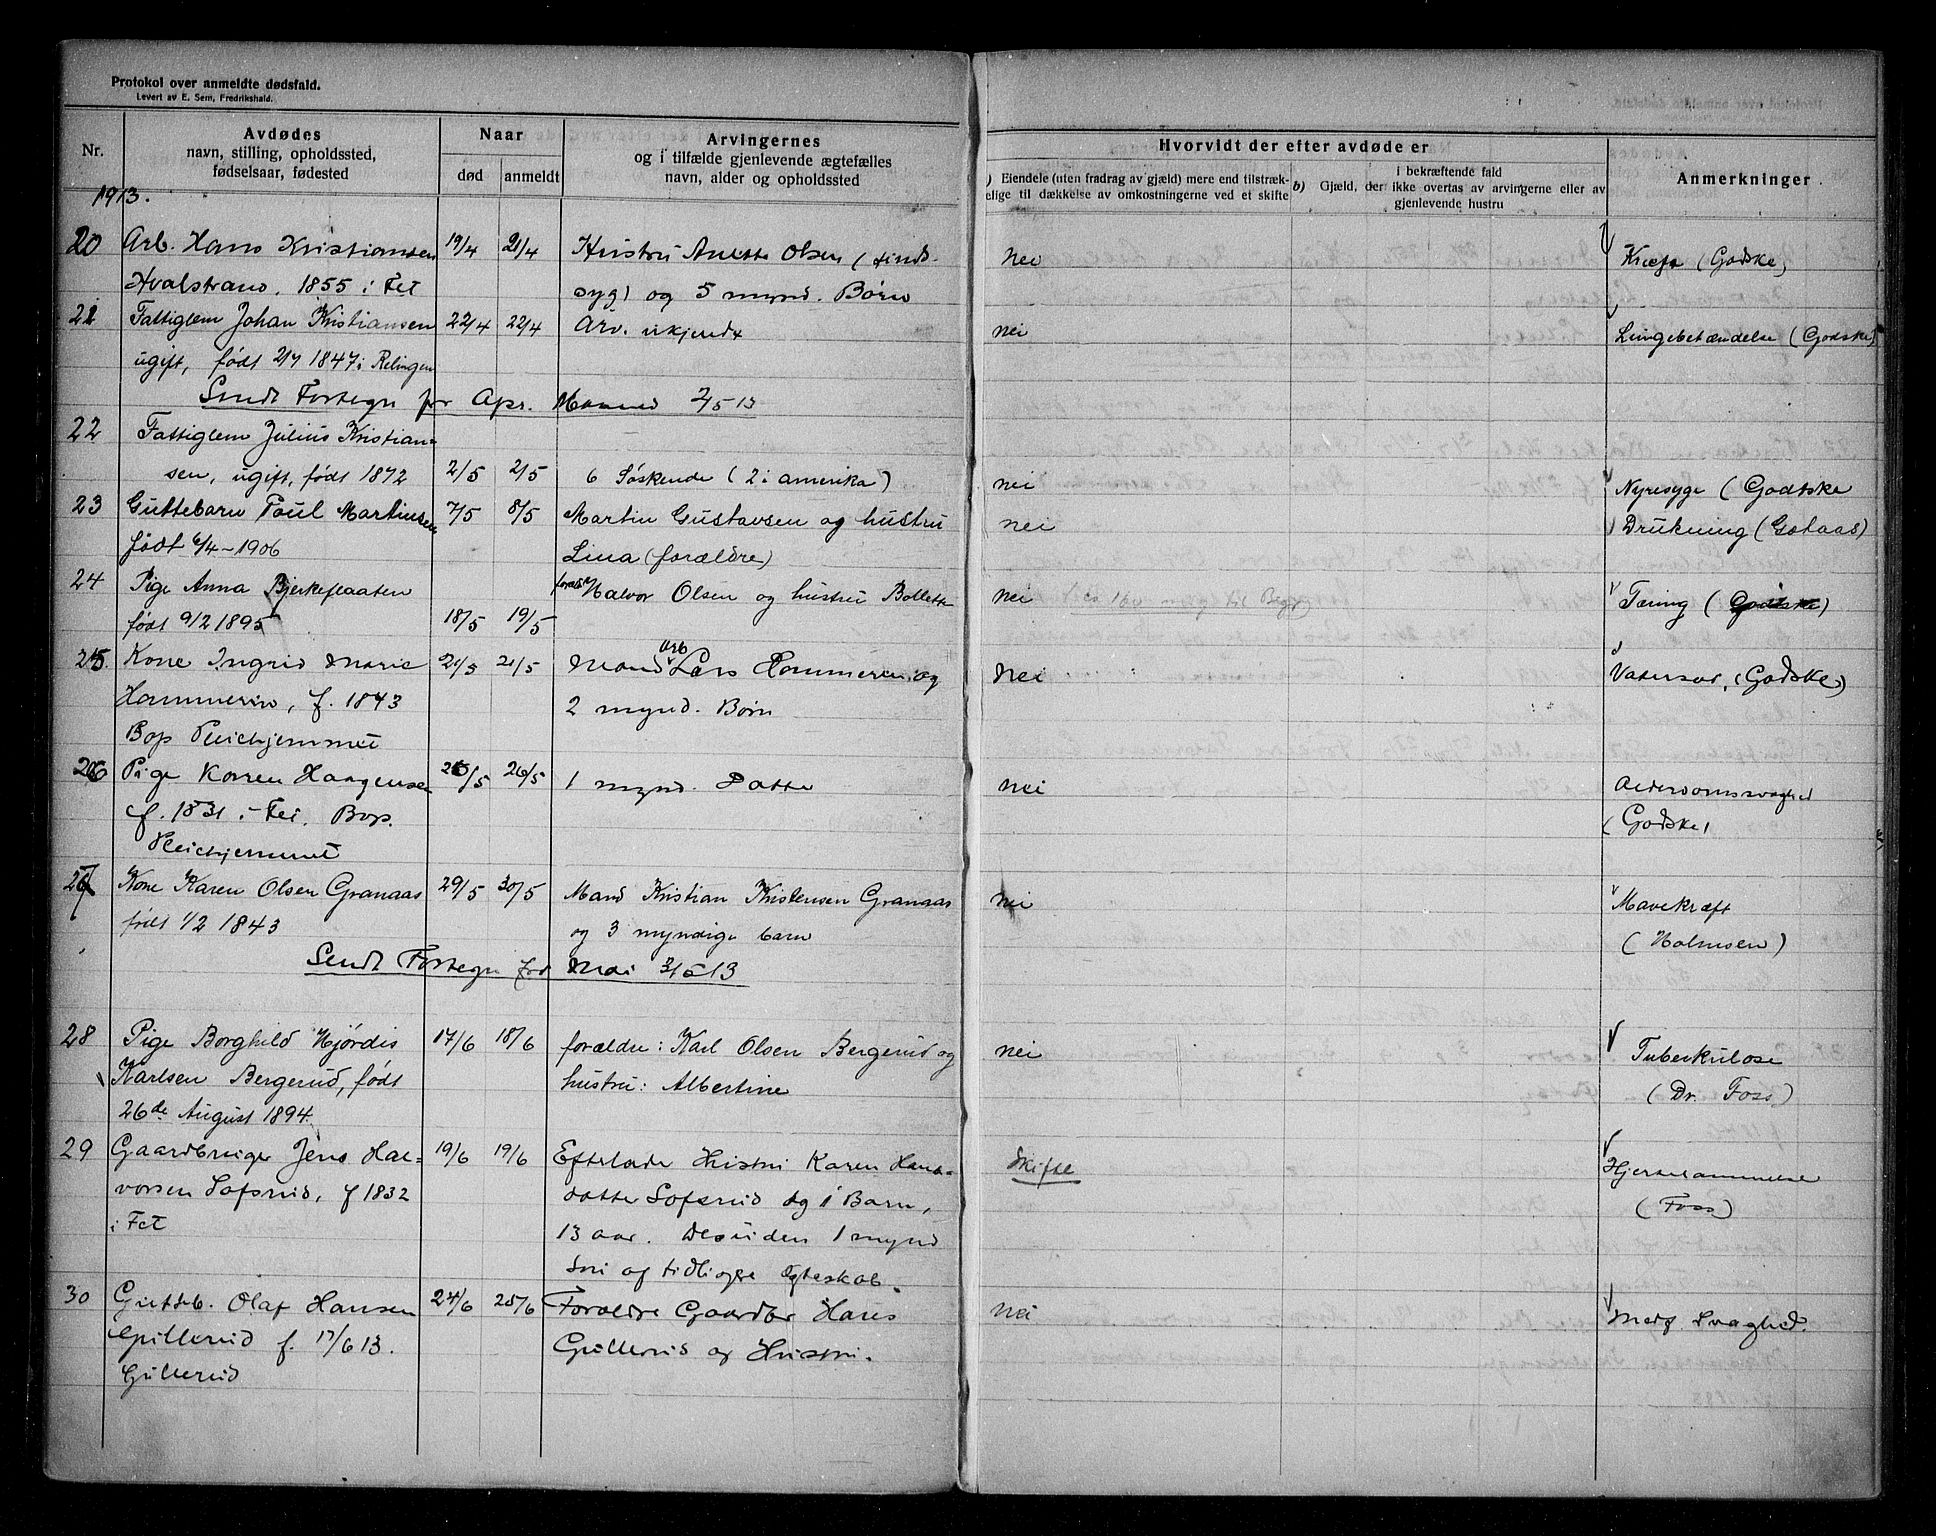 Protokol over anmeldte dødsfald.
Levert av E. Sem, Fredrikshald.
Nr.
Avdødes
navn, stilling, opholdssted,
fødselsaar, fødested
Naar
død
anmeldt
Arvingernes
og i tilfælde gjenlevende ægtefælles
navn, alder og opholdssted
Hvorvidt der efter avdøde er
a) Eiendele (uten fradrag av gjæld) mere end tilstræk-
kelige til dækkelse av omkostningerne ved et skifte
i bekræftende fald
b) Gjæld, der ikke overtas av arvingerne eller av
gjenlevende hustru
Anmerkninger
1913.
20 Arb. Hans Kristiansen 19/4 21/4 Hustru Anette Olsen (sinds- nei Kræft (Godske)
Hvalstrand, 1855 i Fet syg) og 5 mynd. Børn
21 Fattiglem Johan Kristiansen 22/4 22/4 Arv. ukjendt nei Lungebetændelse (Godske)
ugift, født 2/7 1847 i Relingen
Sendt Fortegn for Apr. Maaned 2/5 13
22 Fattiglem Julius Kristian-
sen, ugift, født 1872 2/5 2/5 6 Søskende (2 i amerika) nei Nyresyge (Godtske
23 Guttebarn Poul Martinsen 7/5 8/5 Martin Gustavsen og hustru nei Drukning (Gotaas)
født 6/4-1906 Lina (forældre)
24 Pige Anna Bjerkeflaaten forældre Halvor Olsen og hustru Bollette nei ca 160 til Tæring (Godtske)
født 9/2 1895 18/5 19/5
25. Kone Ingrid Marie 21/5 21/5 Mand Arb Lars Hammeren og nei Vatersot, (Godske)
Hammeren, f. 1843 2 mynd. Børn
Bop Pleiehjemmet
26 Pige Karen Haagensen 26/5 26/5 1 mynd. Datter nei Alderdomssvaghed
f. 1831 i Fet. Bop. (Godske)
Pleiehjemmet
27 Kone Karen Olsen Granaas 29/5 30/5 Mand Kristian Kristensen Granaas nei Mavekræft
født 1/2 1843 og 3 myndige barn (Holmsen)
Sendt Fortegn for Mai 31/5 13
28 Pige Borghild Hjørdis 17/6 18/6 forældre: Karl Olsen Bergerud og nei Tuberkulose
Karlsen Bergerud, født hustru: Albertine (Dr. Foss)
26de August 1894.
29 Gaardbruger Jens Hal- 19/6 19/6 Efterlade Hustru Karen Hans- Skifte Hjertelammelse
vorsen Lofsrud, f 1832 datter Lofsrud og 1 Barn, (Foss)
i Fet 13 aar. Desuden 1 mynd
tidligere Ægteskab.
30 Gutteb. Olaf Hansen 24/6 25/6 Forældre Gaardbr Hans nei Medf. Svaghed.
Gullerud f. 17/6 13. Gullerud og Hustru.
Gullerud